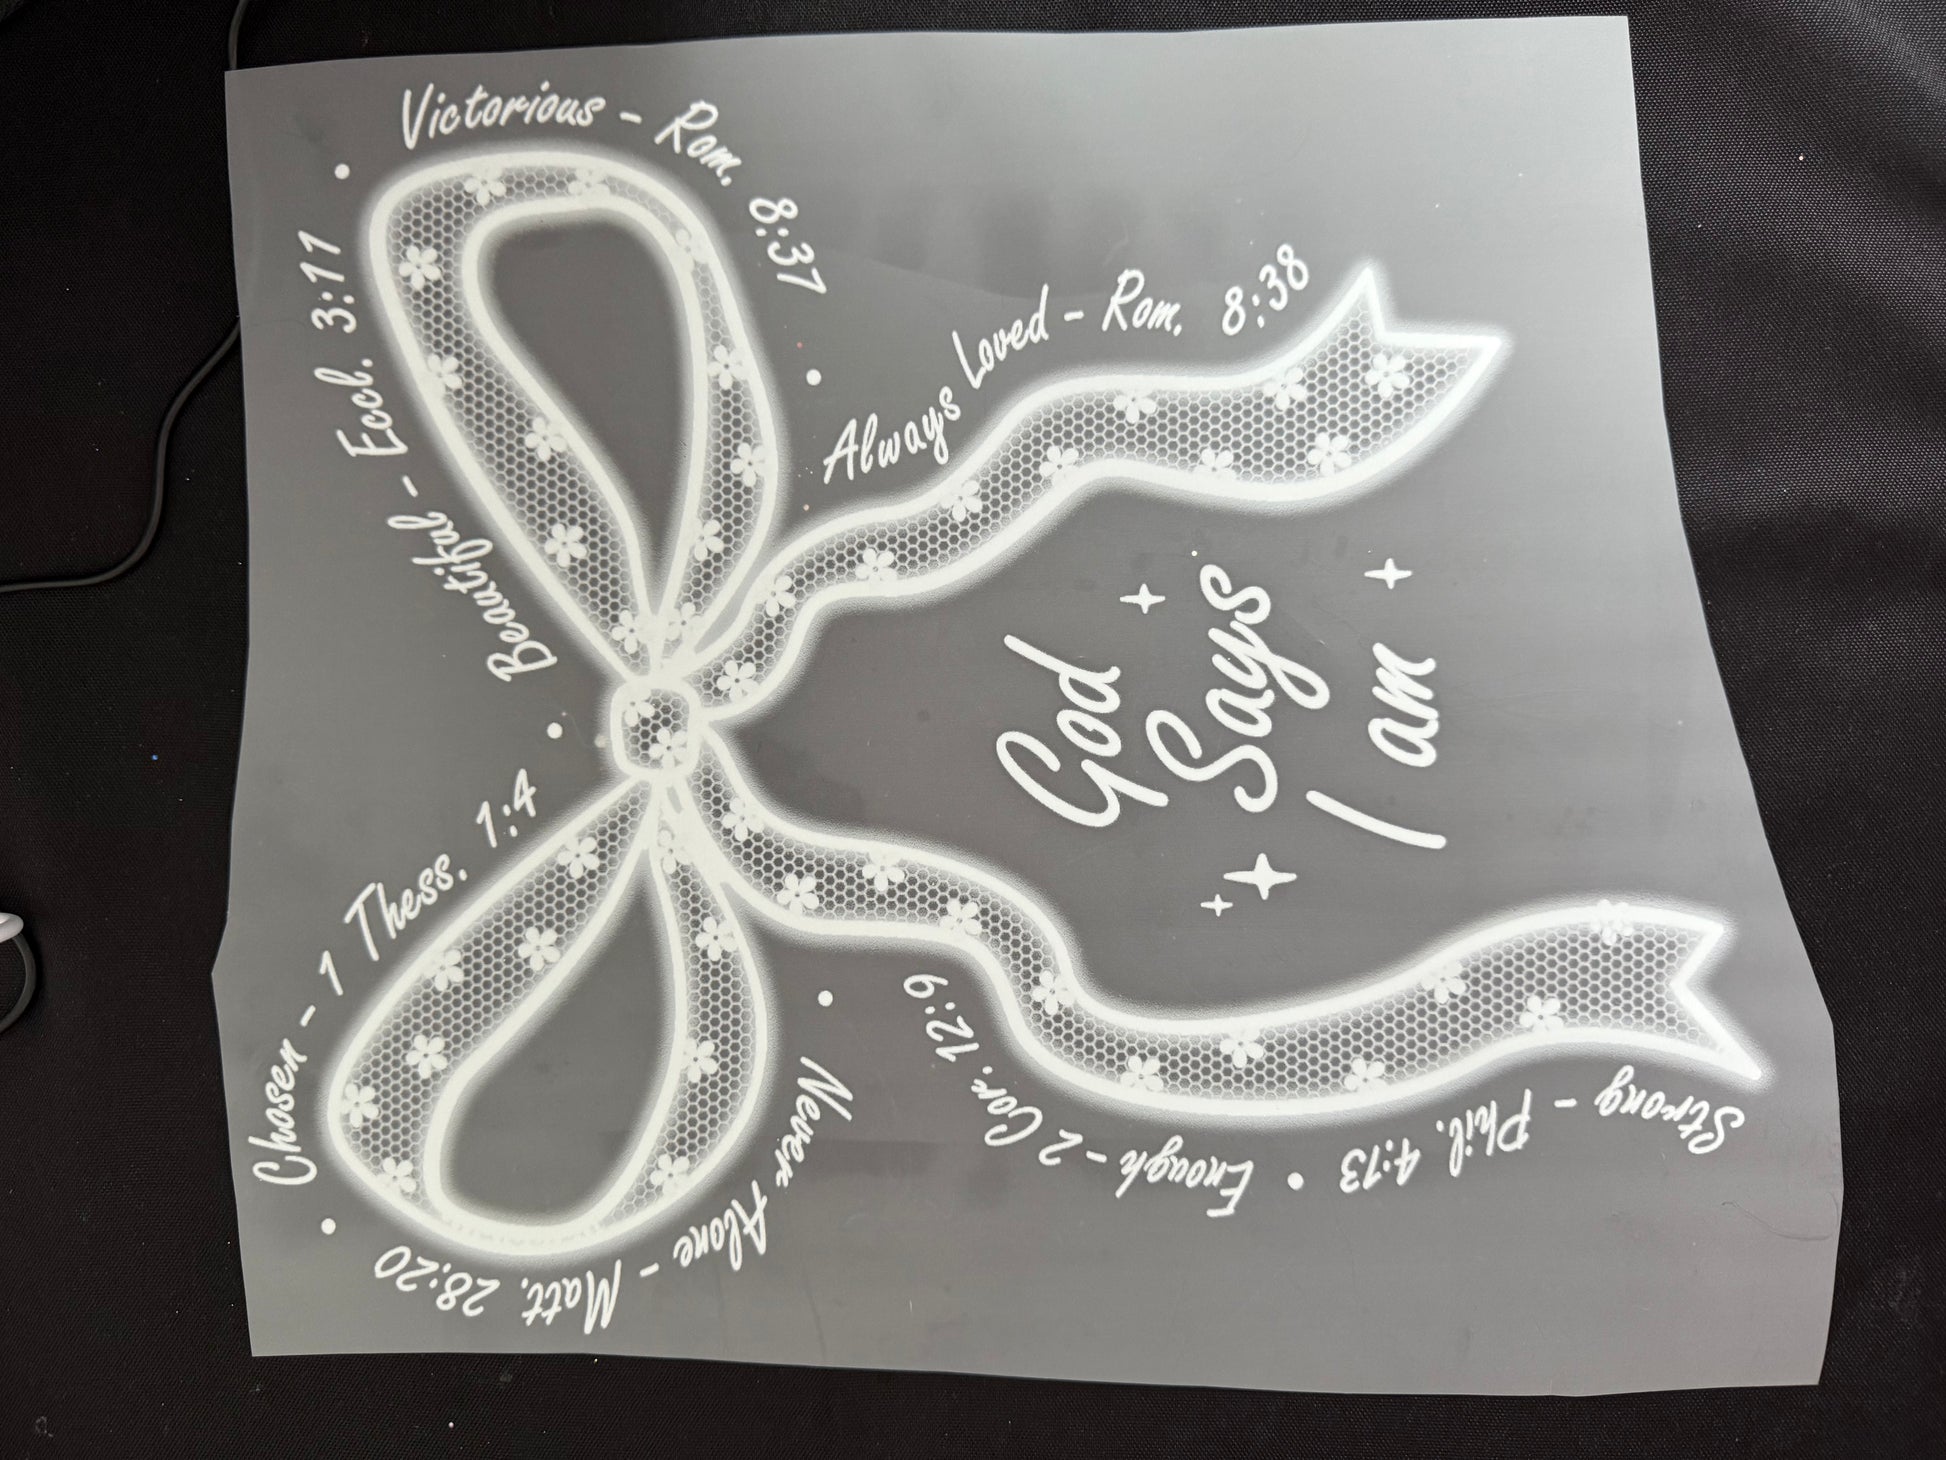 Strong - Phil. 4:13 • Enough - 2 Cor. 12:9 • Never Alone - Matt. 28:20 • Chosen - 1 Thess. 1:4 • Beautiful - Eccl. 3:11 • Victorious - Rom. 8:37 • Always Loved - Rom. 8:38
God
Says
I am